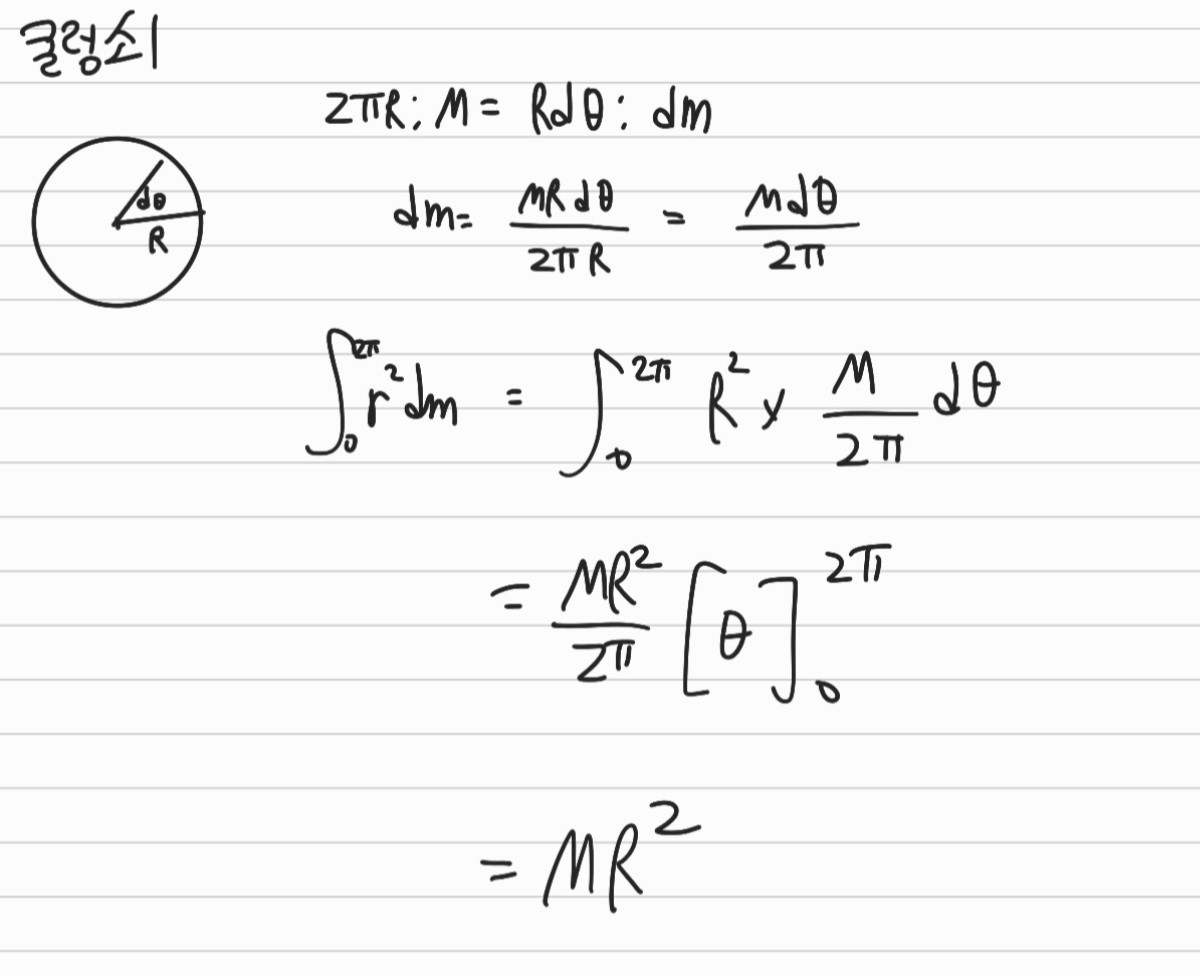 클럼쇠
2πR : M = Rdθ : dm
dθ
R
dm = MRdθ/2πR = Mdθ/2π
∫₀^2π r² dm = ∫₀^2π R² × M/2π dθ
= MR²/2π [θ]₀^2π
= MR²